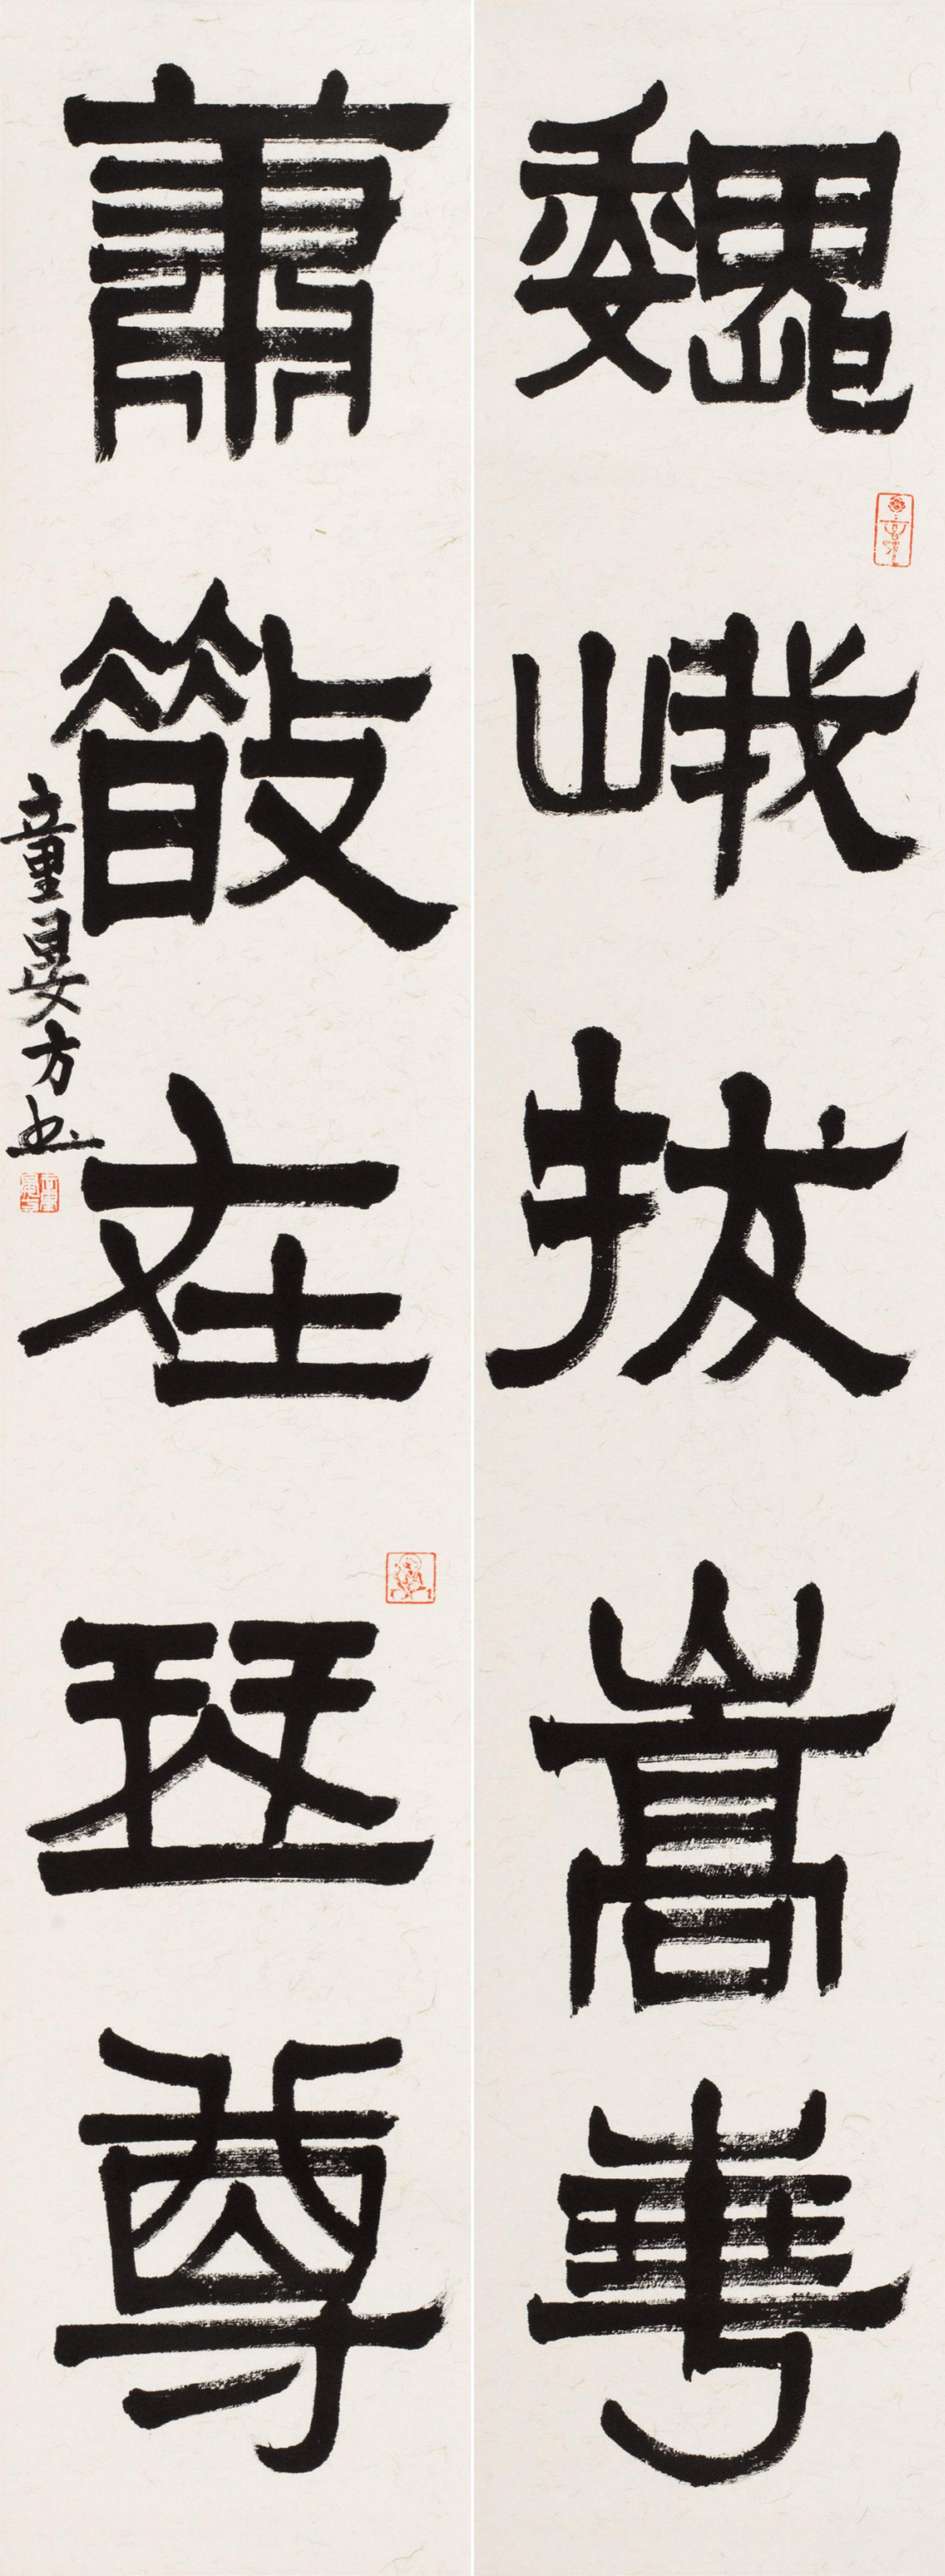 巍峨拔嵩華
蕭散在琴尊
童晏方书